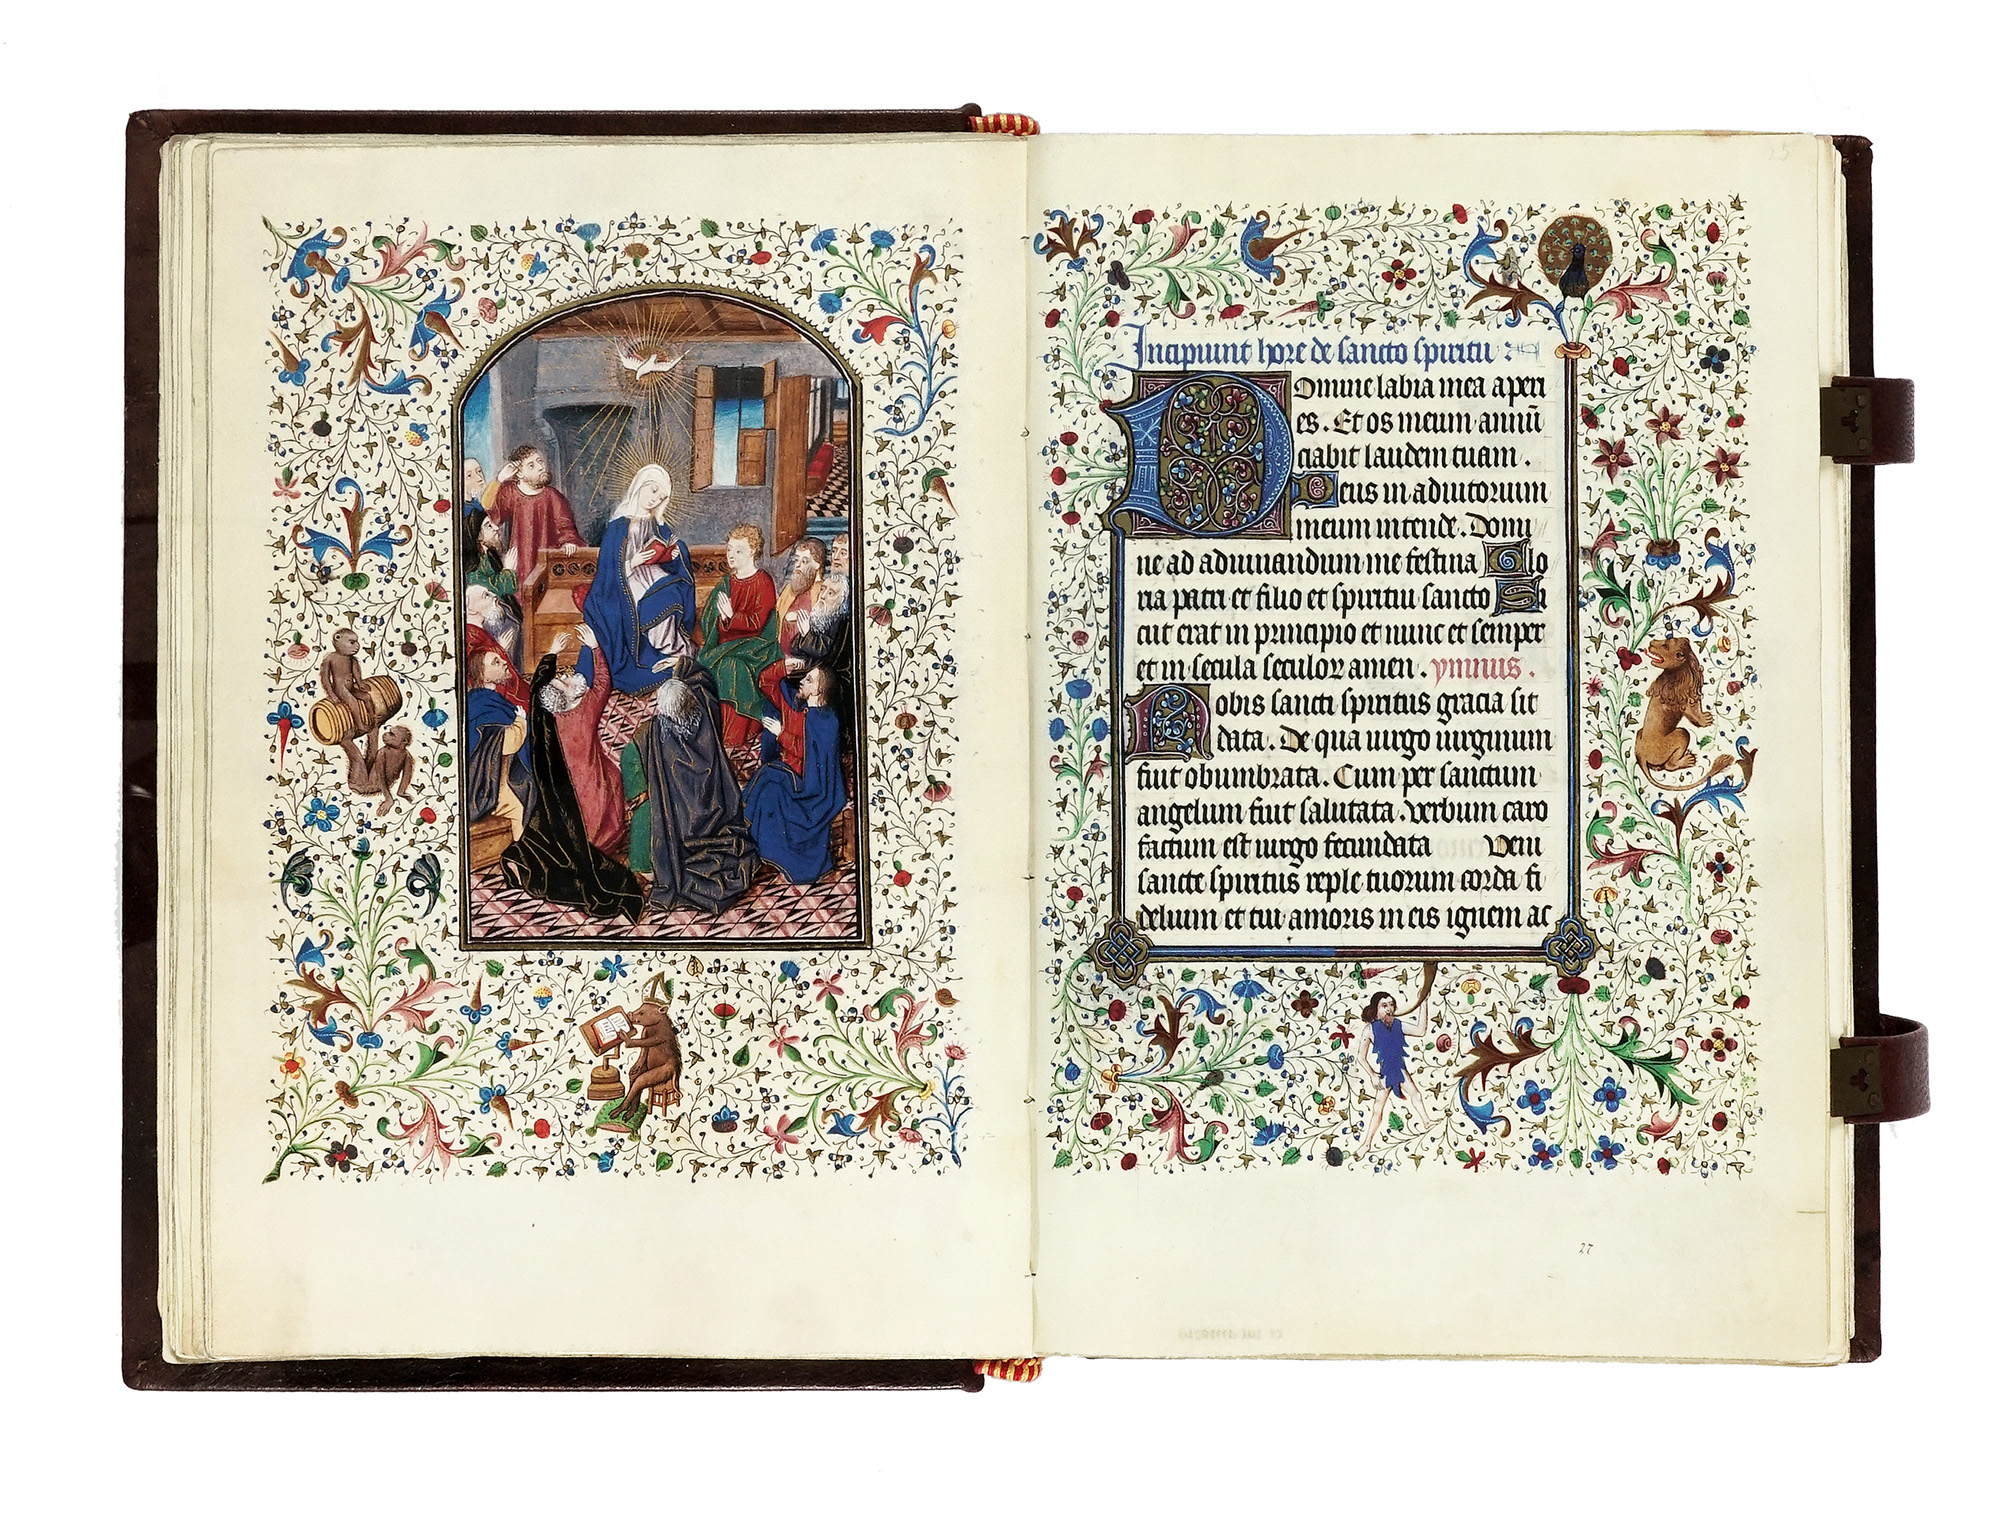 Incipiunt hore de sancto spiritu
Domine labia mea aperi
es. Et os meum annū
ciabit laudem tuam.
Deus in adiutorium
meum intende. Domi
ne ad adiuuandum me festina Glo
ria patri et filio et spiritui sancto Si
cut erat in principio et nunc et semper
et in secula seculor amen. ymnus.
Nobis sancti spiritus gracia sit
data. De qua uirgo uirginum
fuit obumbrata. Cum per sanctum
angelum fuit salutata. Verbum caro
factum est uirgo fecundata Veni
sancte spiritus reple tuorum corda fi
delium et tui amoris in eis ignem ac
27